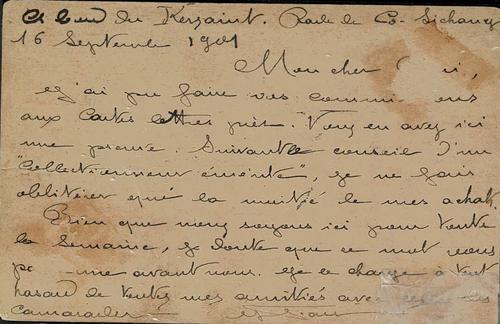 A bord du Kersaint. Rade de Co-Sichang
16 Septembre 1901
Mon cher
j'ai pu faire vos commi ons
aux Cartes lettres près. Vous en avez ici
une preuve. Suivant le conseil d'un
"Collectionneur émérite", je ne fais
oblitérer que la moitié de mes achats.
Bien que nous soyons ici pour toute
la Semaine, je doute que ce mot vous
avant nous. Je te charge à tout
hasard de toutes mes amitiés avec des
camarades